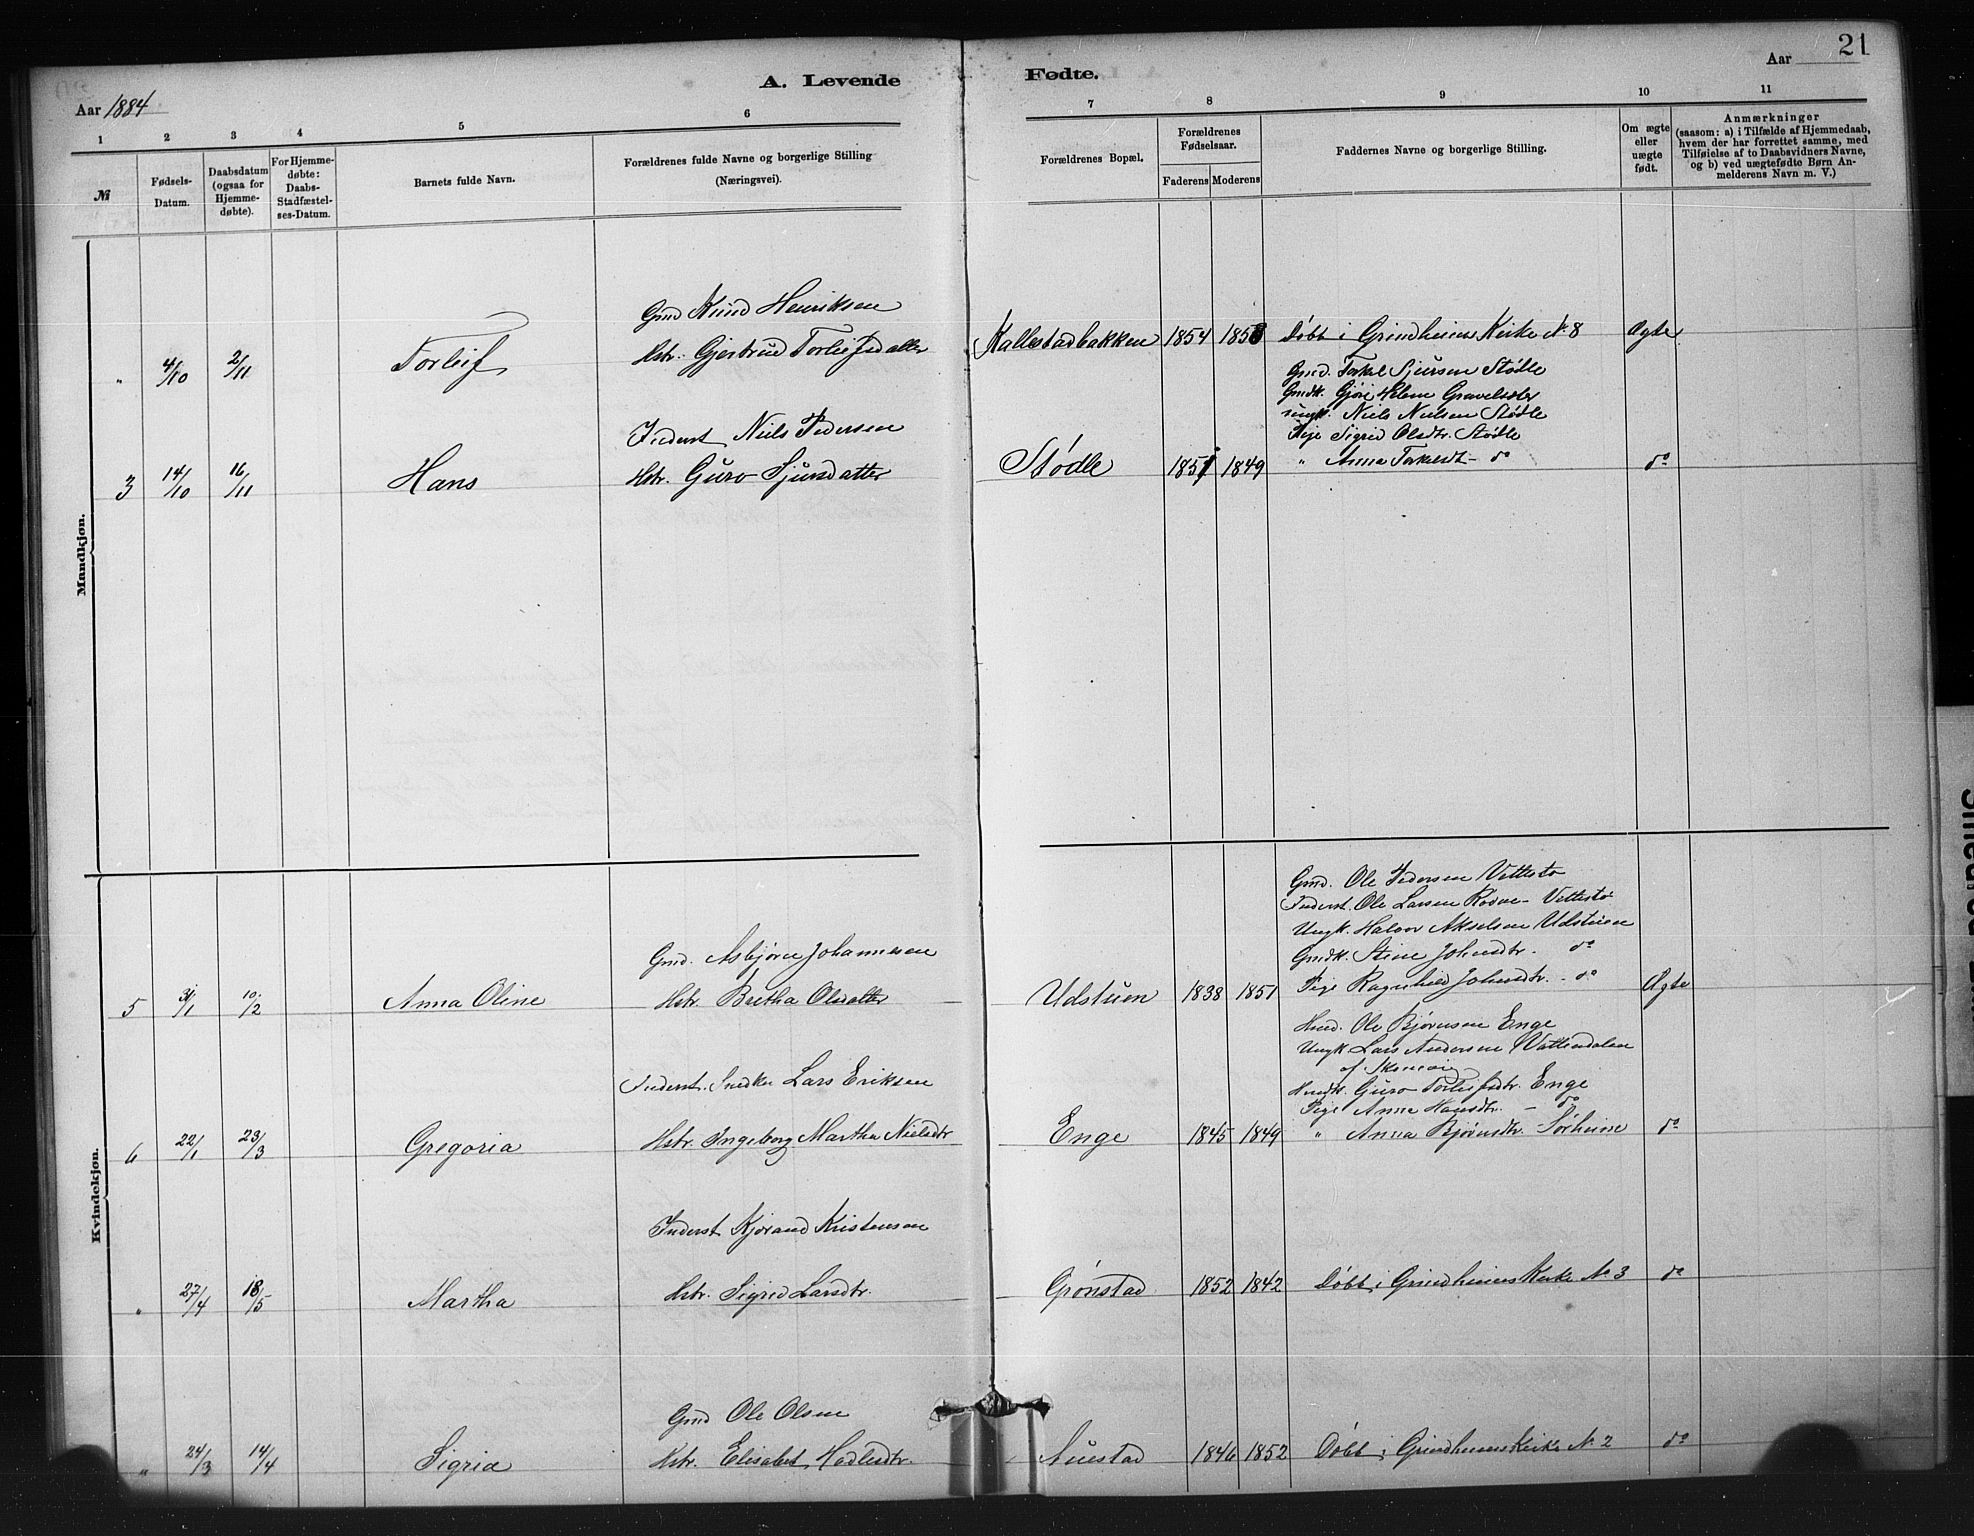 A. Levende Fødte.
21
Aar 1884
Aar
1 2 3 4 5 6 7 8 9 10 11
№
Fødsels-Datum.
Daabsdatum (ogsaa for Hjemme-døbte).
For Hjemme-døbte: Daabs-Stadfæstel-ses-Datum.
Barnets fulde Navn.
Forældrenes fulde Navne og borgerlige Stilling (Næringsvei).
Forældrenes Bopæl.
Forældrenes Fødselsaar.
Faderens Moderens
Faddernes Navne og borgerlige Stilling.
Om ægte eller uægte født.
Anmærkninger
(saasom: a) i Tilfælde af Hjemmedaab,
hvem der har forrettet samme, med
Tilføielse af to Daabsvidners Navne,
og b) ved uægtefødte Børn An-
melderens Navn m. V.)
Mandkjøn.
Gmd Knud Henriksen
" 4/10 2/11 Torleif Hstr. Gjertrud Torleifsdatter Kallestadbakken 1854 1858 Døbt i Grindheims Kirke No 8 Ægte
Gmd. Torkel Sjursen Stødle
Gmdk. Gjøri Helene Gravelsæter
Ungk. Niels Nielsen Stødle
Inderst Niels Pedersen
Pige Sigrid Olsdtr. Stødle
3 14/10 16/11 Hans Hstr. Guro Sjursdatter Stødle 1851 1849 " Anna Torkelsdt - do do
Kvindekjøn.
Gmd. Ole Pedersen Vettestø
Inderst. Ole Larsen Rovne- Vettestø
Ungk. Halvor Akselsen Udstuen
Gmd. Asbjørn Johannesen
Gmdk. Stine Johnsdtr. do
5 31/1 10/2 Anna Oline Hstr. Britha Olsdatter Udstuen 1838 1851 Pige Ragnhild Johnsdtr. - do Ægte
Hmd. Ole Bjørnsen Enge
Ungk. Lars Andersen Vattendalen
af Skonevig
Inderst. Snedker Lars Eriksen
Hmdk. Guro Torleifsdtr. Enge
Pige Anna Hansdtr. - do
6 22/1 23/3 Gregoria Hstr. Ingeborg Martha Nielsdtr Enge 1845 1849 " Anna Bjørnsdtr. Sørheim do
Inderst Kjørand Kristensen
" 27/4 18/5 Martha Hstr. Sigrid Larsdtr. Grønstad 1852 1842 Døbt i Grindheims Kirke No 3 do
Gmd Ole Olsen
" 24/3 14/4 Sigria Hstr. Elisabet Hadlesdtr. Auestad 1846 1852 Døbt i Grindheims Kirke No 2 do